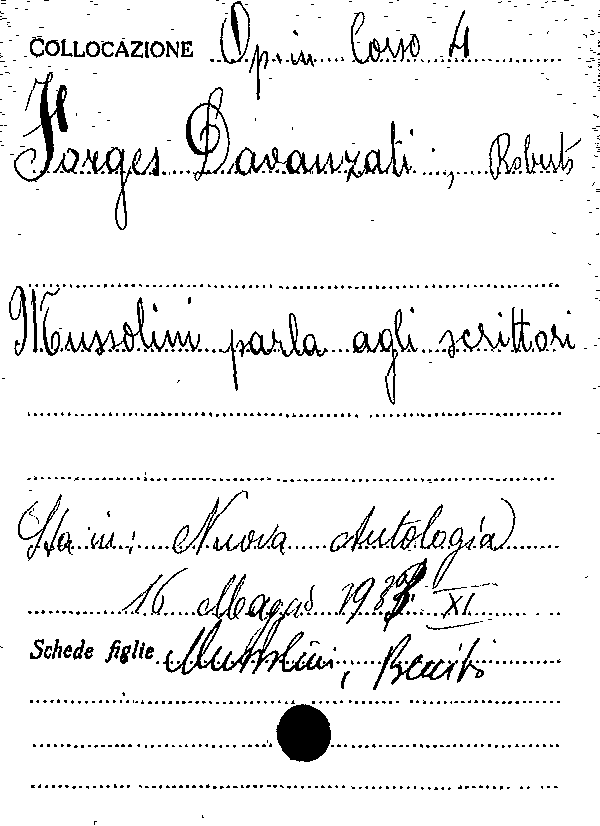 COLLOCAZIONE Op. in Corso 4
Forges Davanzati, Roberto
Mussolini parla agli scrittori
(Sta in: Nuova Antologia)
16 Maggio XI
Schede figlie Mussolini, Benito